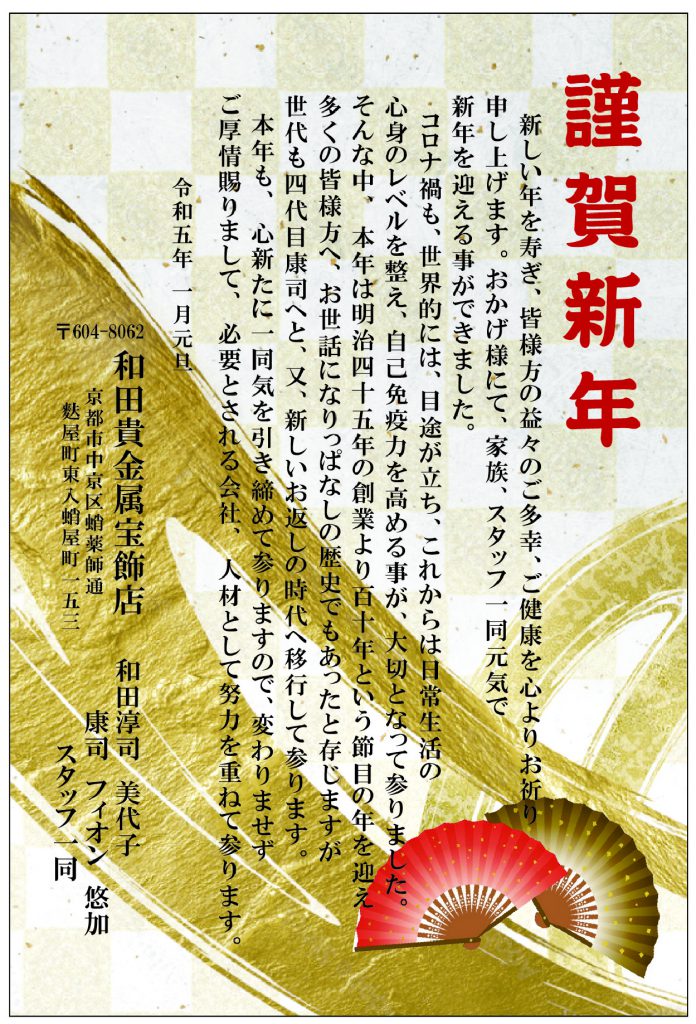 謹賀新年
新しい年を寿ぎ、皆様方の益々のご多幸、ご健康を心よりお祈り
申し上げます。おかげ様にて、家族、スタッフ一同元気で
新年を迎える事ができました。
コロナ禍も、世界的には、目途が立ち、これからは日常生活の
心身のレベルを整え、自己免疫力を高める事が、大切となって参りました。
そんな中、本年は明治四十五年の創業より百十年という節目の年を迎え
多くの皆様方へ、お世話になりっぱなしの歴史でもあったと存じますが
世代も四代目康司へと、又、新しいお返しの時代へ移行して参ります。
本年も、心新たに一同気を引き締めて参りますので、変わりませず
ご厚情賜りまして、必要とされる会社、人材として努力を重ねて参ります。
令和五年 一月元旦
〒604-8062
和田貴金属宝飾店
京都市中京区蛸薬師通
麩屋町東入蛸屋町一五三
和田淳司 美代子
康司 フィオン 悠加
スタッフ一同